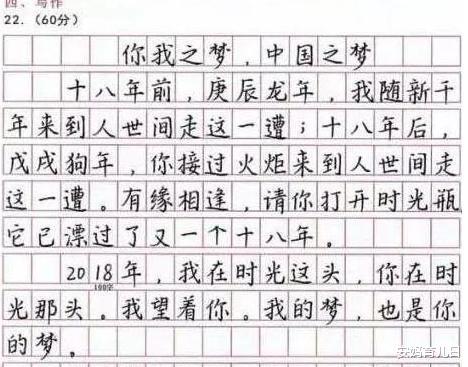 四、写作
22.（60分）
你我之梦，中国之梦
十八年前，庚辰龙年，我随新千
年来到人世间走这一遭；十八年后，
戊戌狗年，你接过火炬来到人世间走
这一遭。有缘相逢，请你打开时光瓶，
它已漂过了又一个十八年。
2018年，我在时光这头，你在时
100字
光那头。我望着你。我的梦，也是你
的梦。
安妈育儿日